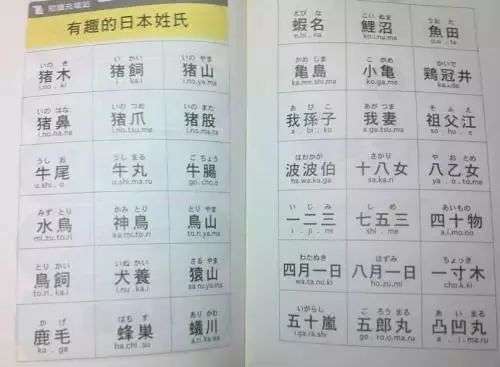 知識充電站
有趣的日本姓氏
いの き い かい いの やま
猪木 猪飼 猪山
i.no . ki i . ka.i i.no.ya.ma
いの はな いの つめ いの また
猪鼻 猪爪 猪股
i.no.ha.na i.no.tsu.me i.no.ma.ta
うし お うし まる ご ちょう
牛尾 牛丸 牛腸
u.shi. o u.shi.ma.ru go.cho.o
みず とり かみ とり とり やま
水鳥 神鳥 鳥山
mi.zu.to.ri ka.mi.to.ri to.ri.ya.ma
とり かい いぬ かい さる やま
鳥飼 犬養 猿山
to.ri. ka.i i.nu . ka.i sa.ru.ya.ma
か げ はち す あり かわ
鹿毛 蜂巢 蟻川
ka . ga ha.chi . su a.ri.ka.wa
え び な こい ぬま うお た
蝦名 鯉沼 魚田
e.bi . na ko.i.nu.ma u.o . ta
かめ しま こ かめ
亀島 小亀 鶏冠井
ka.me.shi.ma ko . ka.me ka.i.de
あ び こ あ がつま そ ふ え
我孫子 我妻 祖父江
a . bi . ko a.ga.tsu.ma so . fu . e
はわかが さかり や お とめ
波波伯 十八女 八乙女
ha.wa.ka.ga sa.ka.ri ya . o.to.me
い じ み し め あいもの
一二三 七五三 四十物
i . ji . mi shi . me a.i.mo.no
わたぬき ほずみ ちょっき
四月一日 八月一日 一寸木
wa.ta.nu.ki ho.zu.mi cho.k.ki
いがらし ご ろう まる あ い こ
五十嵐 五郎丸 凸凹丸
i.ga.ra.shi go . ro.o.ma.ru a . i . ko